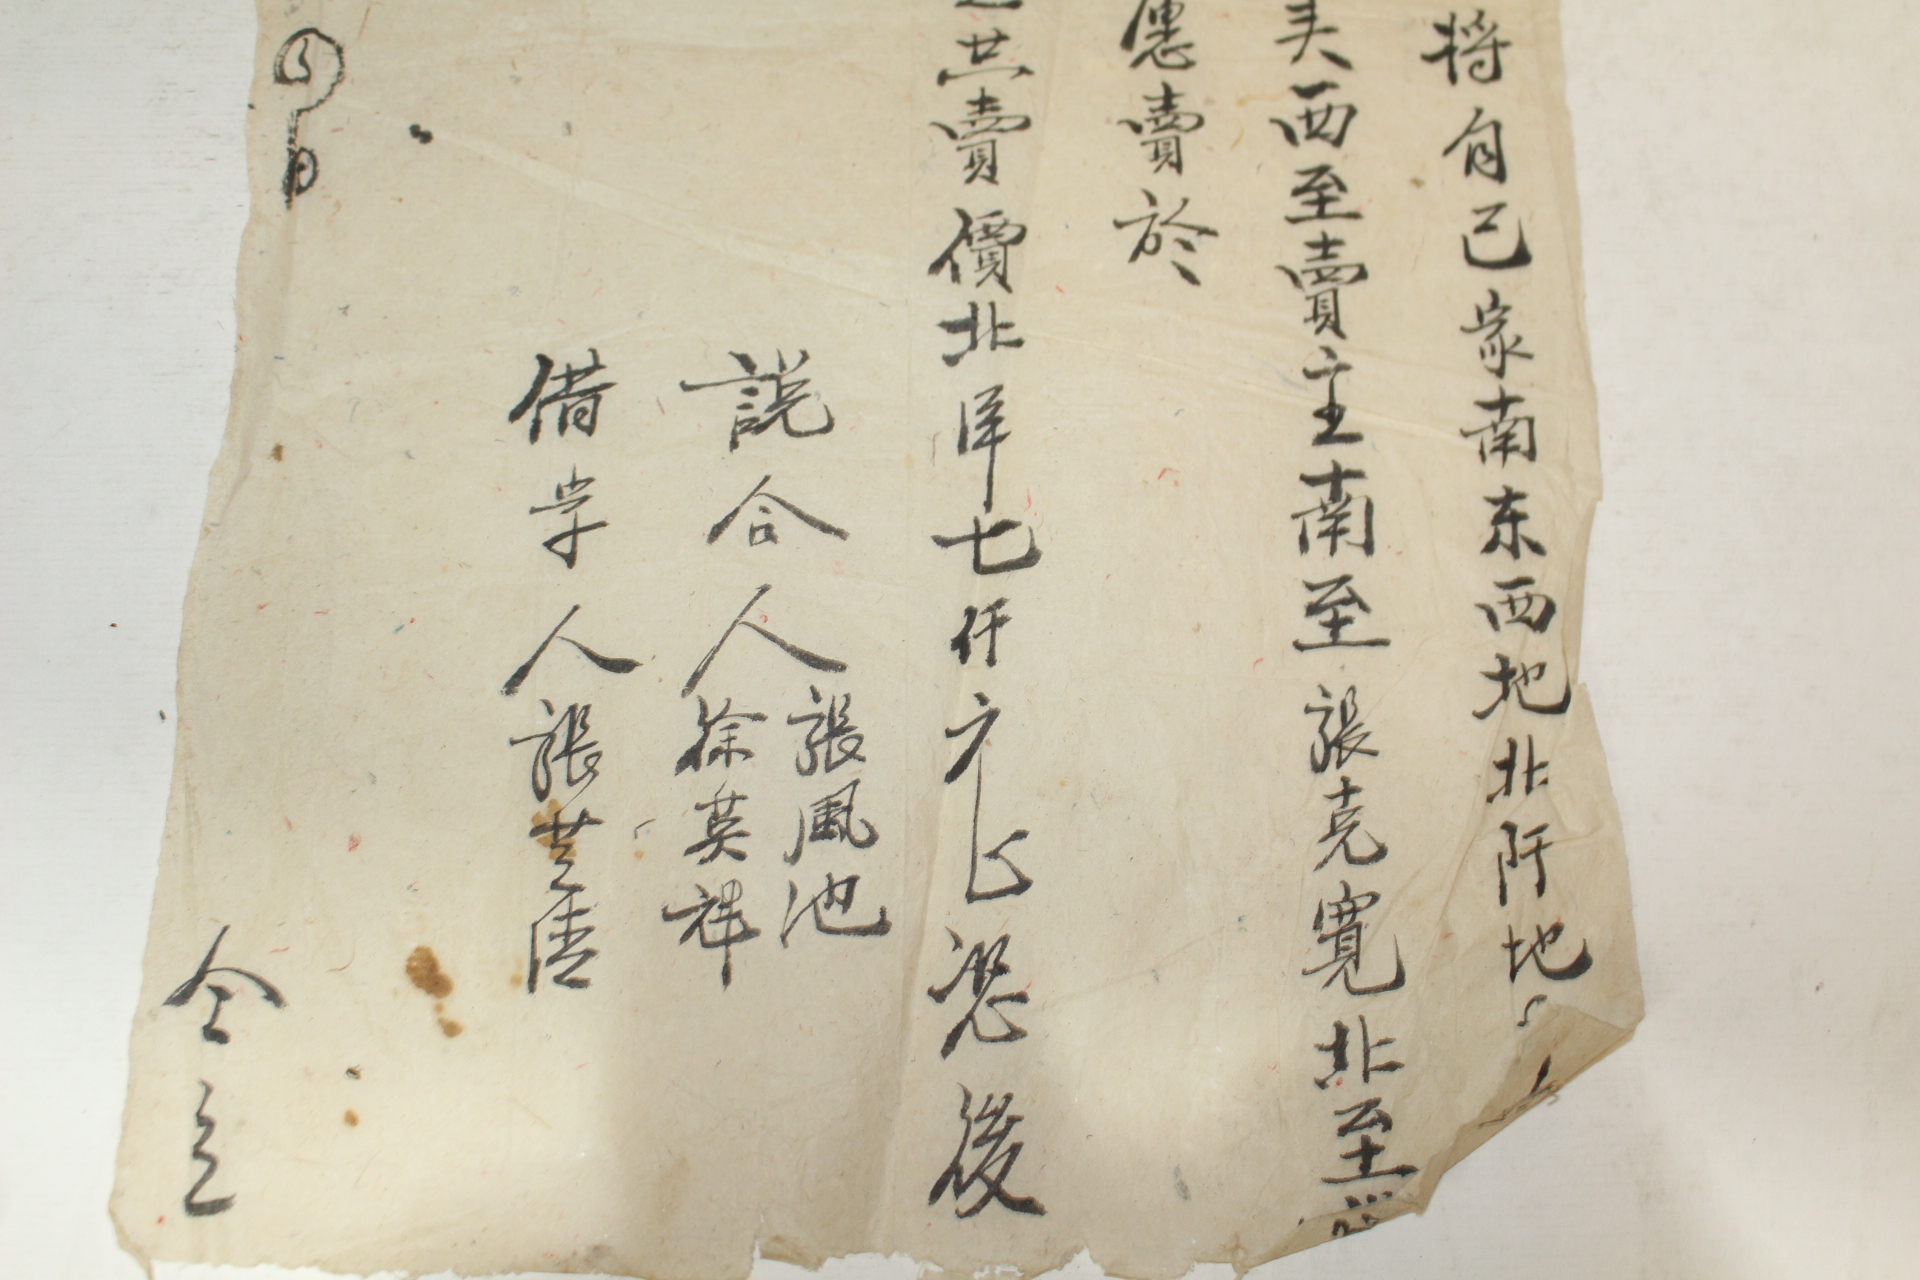 将自己家南东西地北阡地
美西至賣主南至張克寬北至
憑賣於
共賣價北洋七仟元正恐後
說合人張風池
徐英祥
借字人張芝唐
仝立